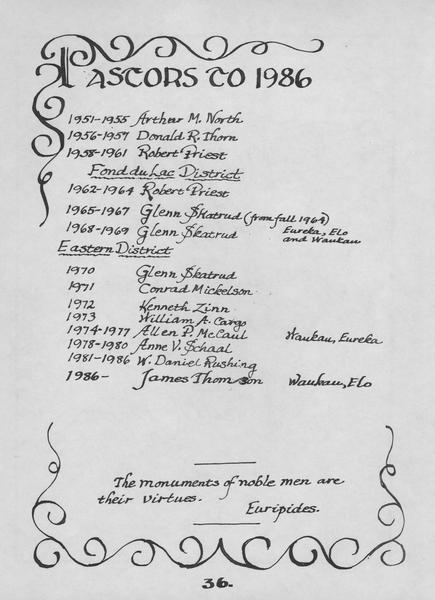 PASTORS TO 1986
1951-1955 Arthur M. North
1956-1957 Donald R. Thorn
1958-1961 Robert Priest
Fond du Lac District
1962-1964 Robert Priest
1965-1967 Glenn Skatrud (from fall 1964)
1968-1969 Glenn Skatrud Eureka, Elo
and Waukau
Eastern District
1970 Glenn Skatrud
1971 Conrad Mickelson
1972 Kenneth Zinn
1973 William A. Cargo
1974-1977 Allen P. McCaul Waukau, Eureka
1978-1980 Anne V. Schaal
1981-1986 W. Daniel Rushing
1986- James Thomson Waukau, Elo
The monuments of noble men are
their virtues. Euripides.
36.